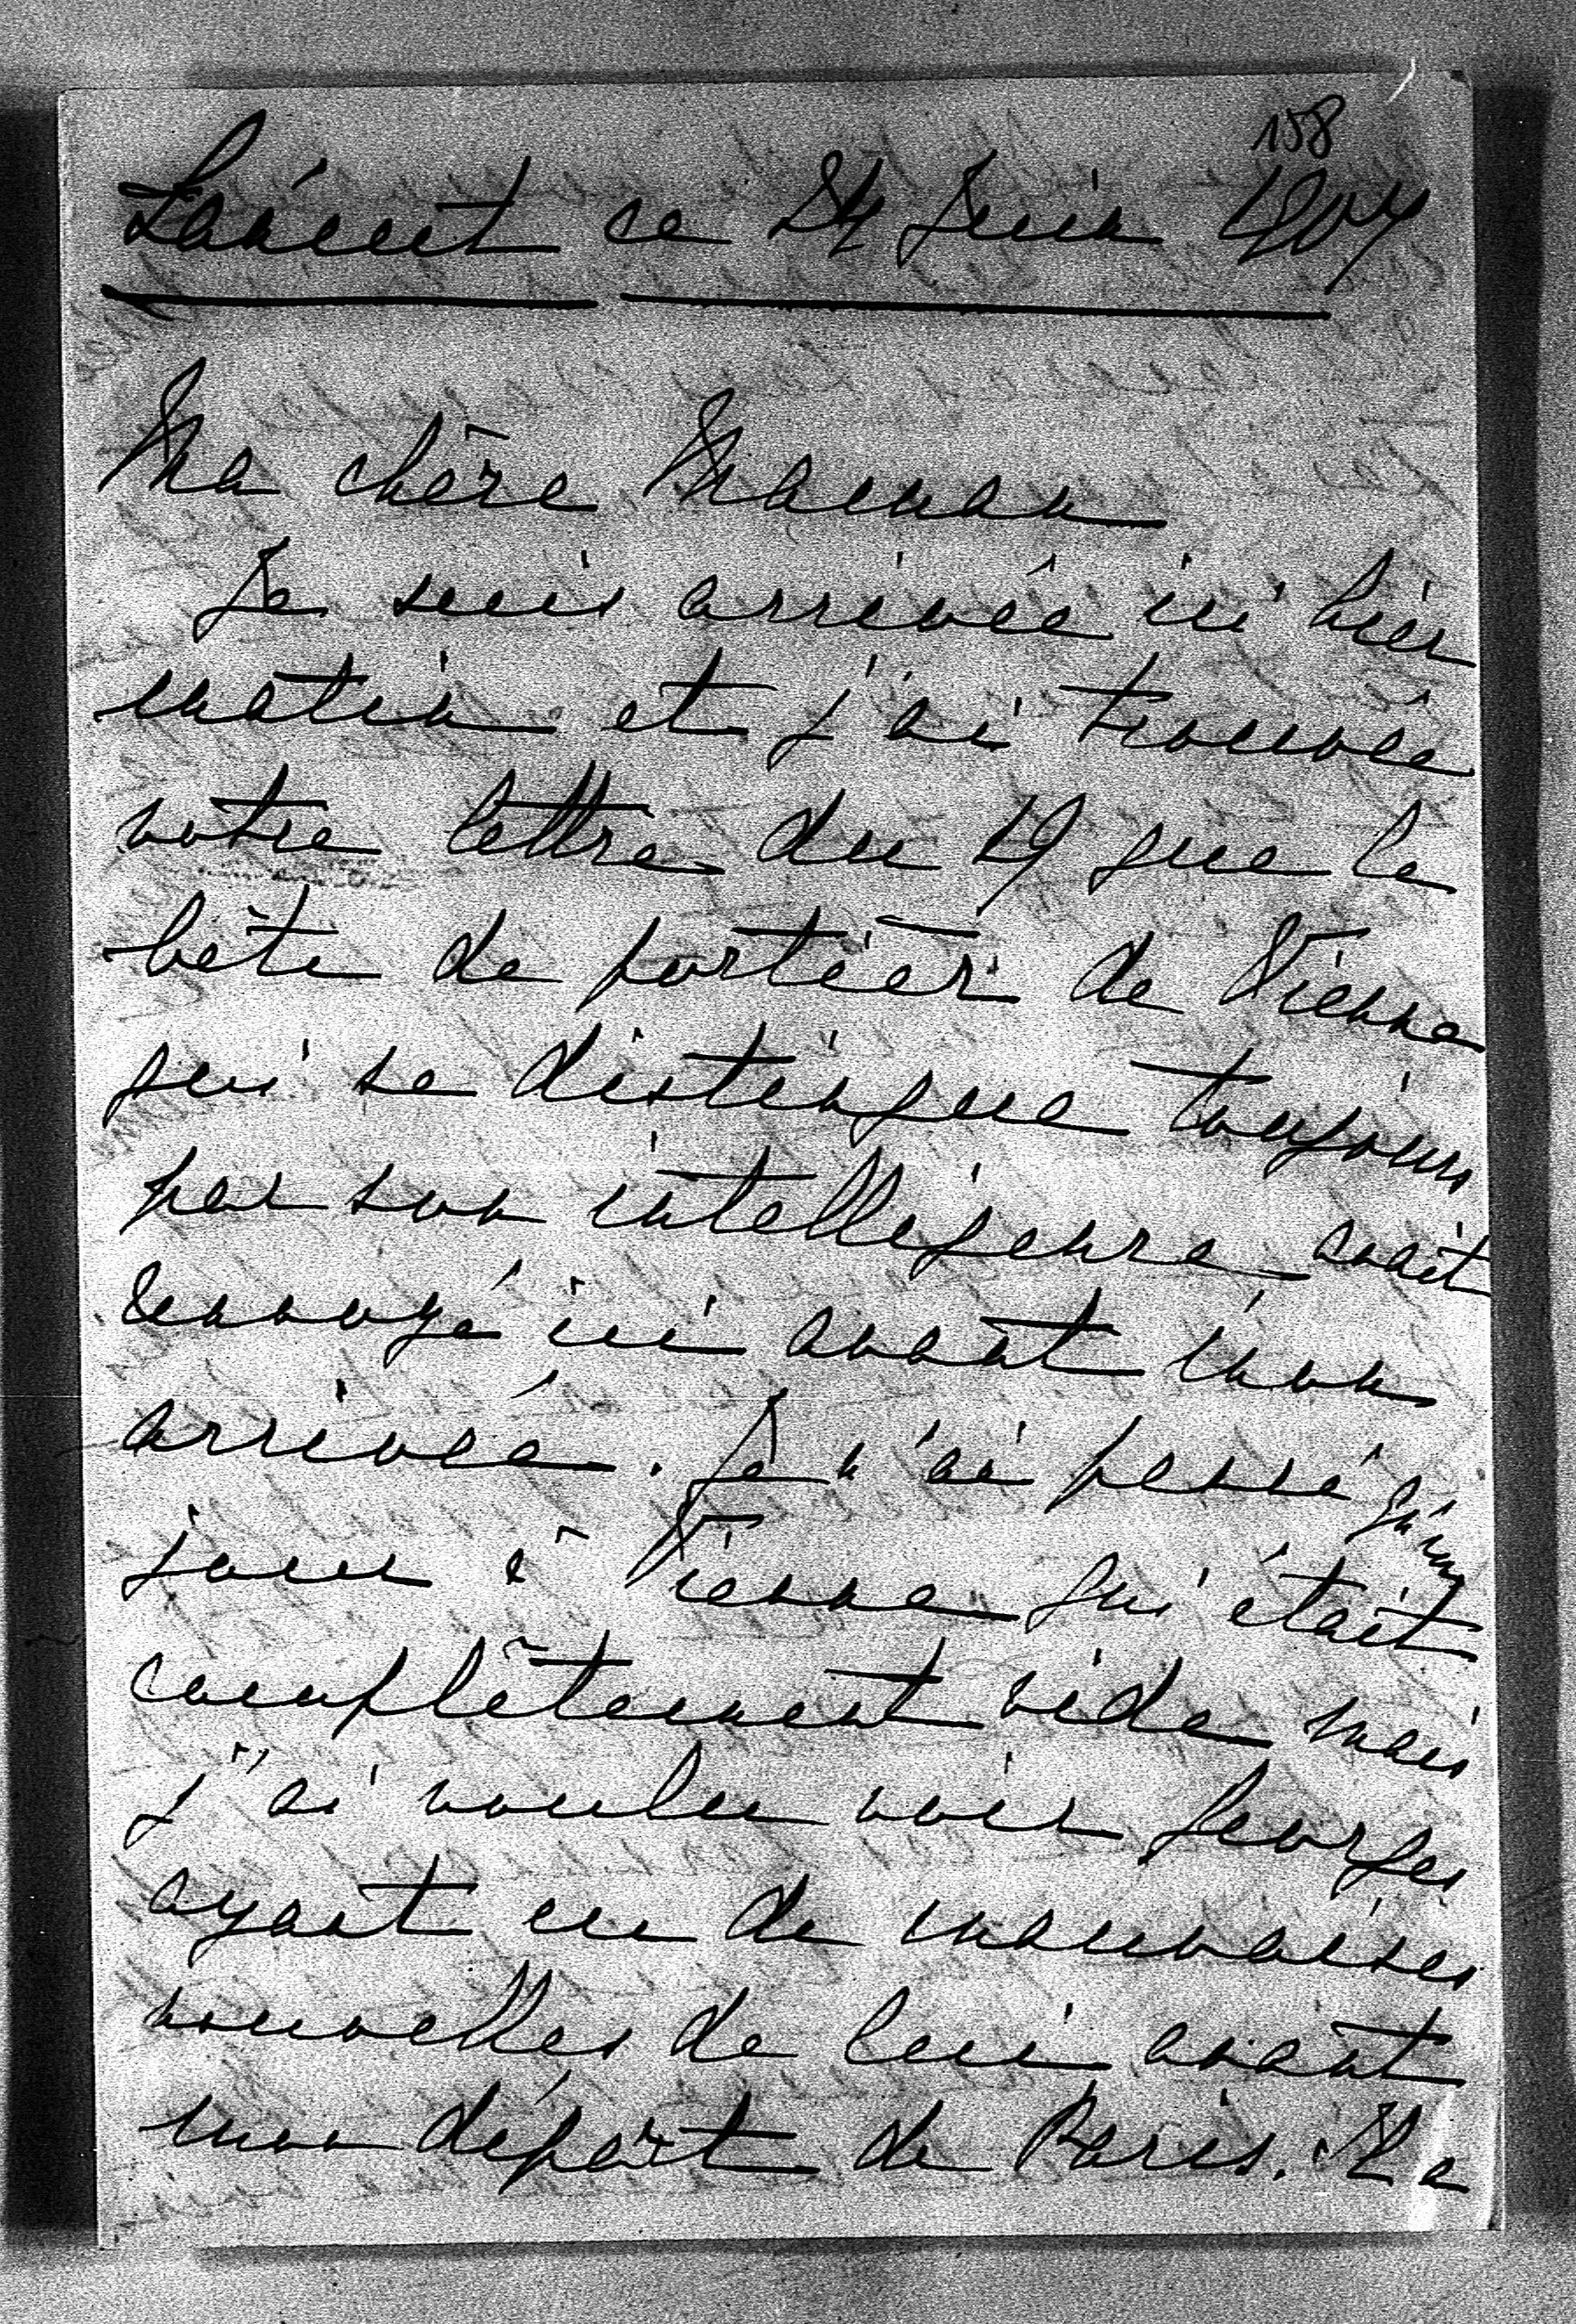 158
Lańcut ce 24 Juin 1904
Ma chère Maman
Je suis arrivée ici hier
matin et j'ai trouvée
votre lettre du 19 que le
bête de portier de Vienne
qui se distingue toujours
par son intelligence avait
envoyé ici avant mon
arrivée. Je n'ai passé qu'un
jour à Vienne qui était
complètement vide mais
j'ai voulu voir Georges
ayant eu de mauvaises
nouvelles de lui avant
mon départ de Paris. Il a